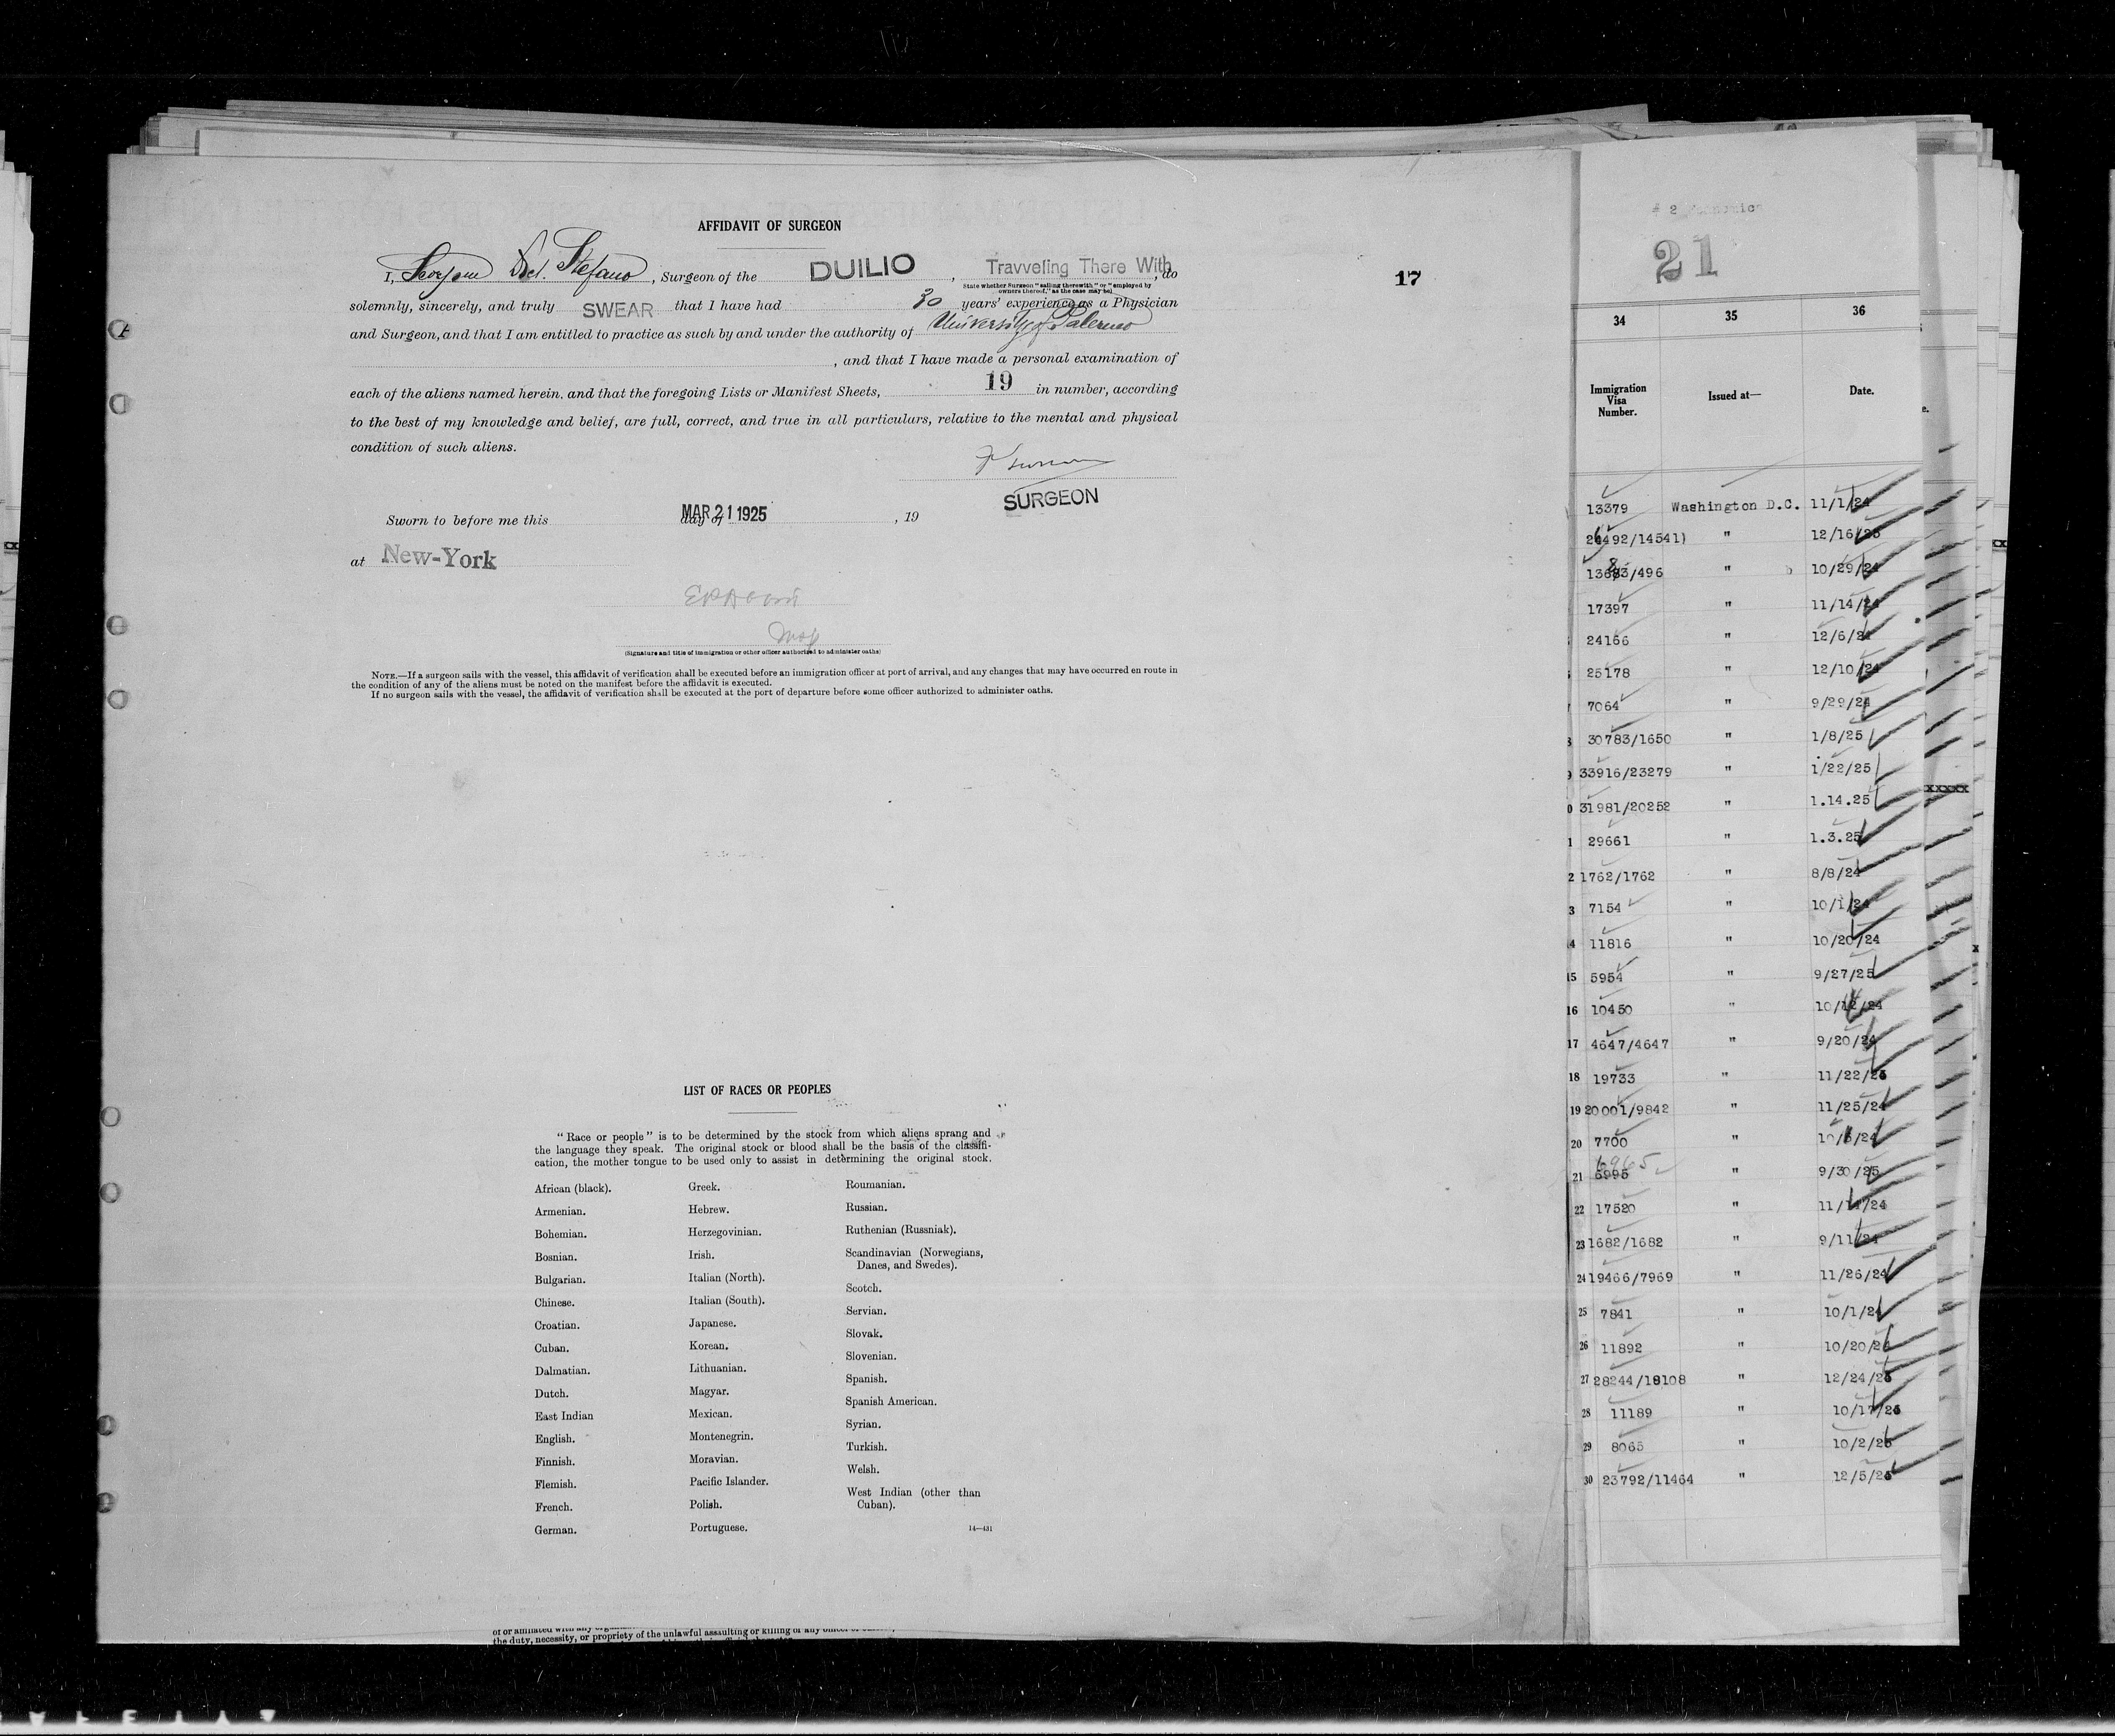 AFFIDAVIT OF SURGEON
I, Dct. Stefano, Surgeon of the DUILIO, Travveling There With, do
State whether Surgeon "sailing therewith" or "employed by
owners thereof," as the case may be)
solemnly, sincerely, and truly SWEAR that I have had 30 years' experience as a Physician
and Surgeon, and that I am entitled to practice as such by and under the authority of University of Palermo
, and that I have made a personal examination of
each of the aliens named herein, and that the foregoing Lists or Manifest Sheets, 19 in number, according
to the best of my knowledge and belief, are full, correct, and true in all particulars, relative to the mental and physical
condition of such aliens.
SURGEON
Sworn to before me this MAR 21 1925 day of , 19
at New-York
(Signature and title of immigration or other officer authorized to administer oaths)
NOTE.—If a surgeon sails with the vessel, this affidavit of verification shall be executed before an immigration officer at port of arrival, and any changes that may have occurred en route in
the condition of any of the aliens must be noted on the manifest before the affidavit is executed.
If no surgeon sails with the vessel, the affidavit of verification shall be executed at the port of departure before some officer authorized to administer oaths.
17
LIST OF RACES OR PEOPLES
"Race or people" is to be determined by the stock from which aliens sprang and
the language they speak. The original stock or blood shall be the basis of the classifi-
cation, the mother tongue to be used only to assist in determining the original stock.
African (black).
Armenian.
Bohemian.
Bosnian.
Bulgarian.
Chinese.
Croatian.
Cuban.
Dalmatian.
Dutch.
East Indian
English.
Finnish.
Flemish.
French.
German.
Greek.
Hebrew.
Herzegovinian.
Irish.
Italian (North).
Italian (South).
Japanese.
Korean.
Lithuanian.
Magyar.
Mexican.
Montenegrin.
Moravian.
Pacific Islander.
Polish.
Portuguese.
Roumanian.
Russian.
Ruthenian (Russniak).
Scandinavian (Norwegians,
Danes, and Swedes).
Scotch.
Servian.
Slovak.
Slovenian.
Spanish.
Spanish American.
Syrian.
Turkish.
Welsh.
West Indian (other than
Cuban).
14—431
the duty, necessity, or propriety of the unlawful assaulting or killing of any
# 2
21
34 35 36
Immigration Visa Number. Issued at— Date.
13379 Washington D.C. 11/1/24
492/14541) " 12/16/
/496 " 10/29/24
17397 " 11/14/24
24166 " 12/6/24
25178 " 12/10/24
7064 " 9/29/24
30783/1650 " 1/8/25
33916/23279 " 1/22/25
31981/20252 " 1.14.25
29661 " 1.3.25
2 1762/1762 " 8/8/24
3 7154 " 10/1/24
4 11816 " 10/20/24
15 5954 " 9/27/25
16 10450 " 10/12/24
17 4647/4647 " 9/20/24
18 19733 " 11/22/
19 20001/9842 " 11/25/24
20 7700 " 24
21 6995 6965 " 9/30/25
22 17520 " 11/ /24
23 1682/1682 " 9/11/24
24 19466/7969 " 11/26/24
25 7841 " 10/1/24
26 11892 " 10/20/24
27 28244/18108 " 12/24/
28 11189 " 10/17/
29 8065 " 10/2/
30 23792/11464 " 12/5/